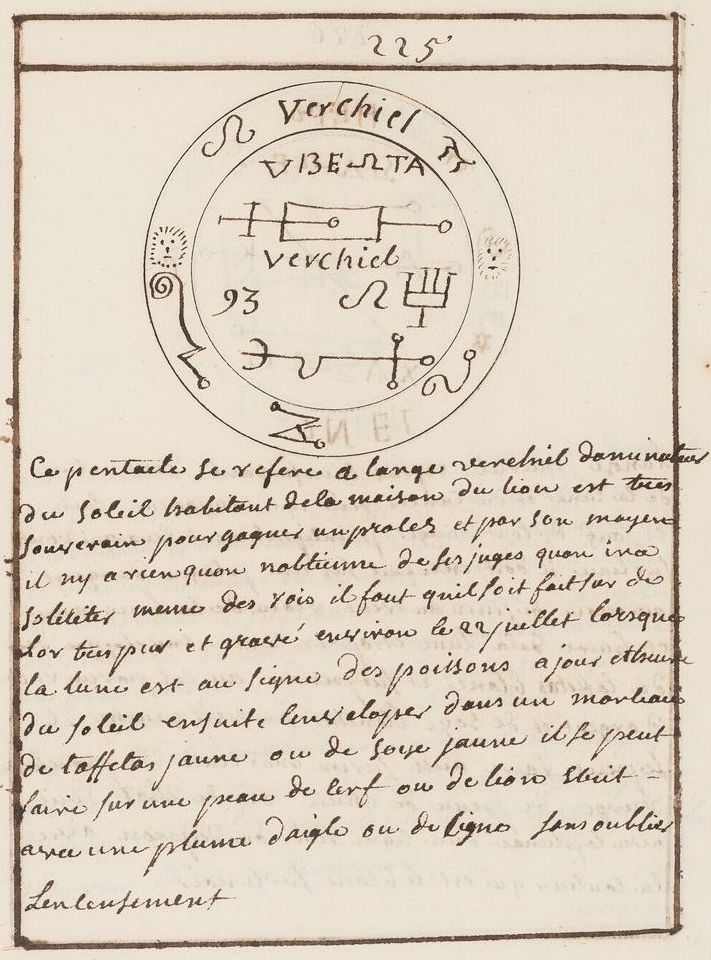 225
Verchiel
VBEΩTA
verchiel
93
Ce pentacle se refere a lange verchiel dominateur
du soleil habitant de la maison du lion est tres
souverain pour gaguer un proles et par son moyen
il ny a rien quon nobtienne de ses juges quon ira
soliciter meme des rois il faut quil soit fait sur de
lor tres pur et gravé environ le 22 juillet lorsque
la lune est au signe des poissons a jour et heure
du soleil ensuite lenveloper dans un morceau
de taffetas jaune ou de soye jaune il se peut
faire sur une peau de cerf ou de lion ecrit =
avec une plume daigle ou de signe sans oublier
Lencensement